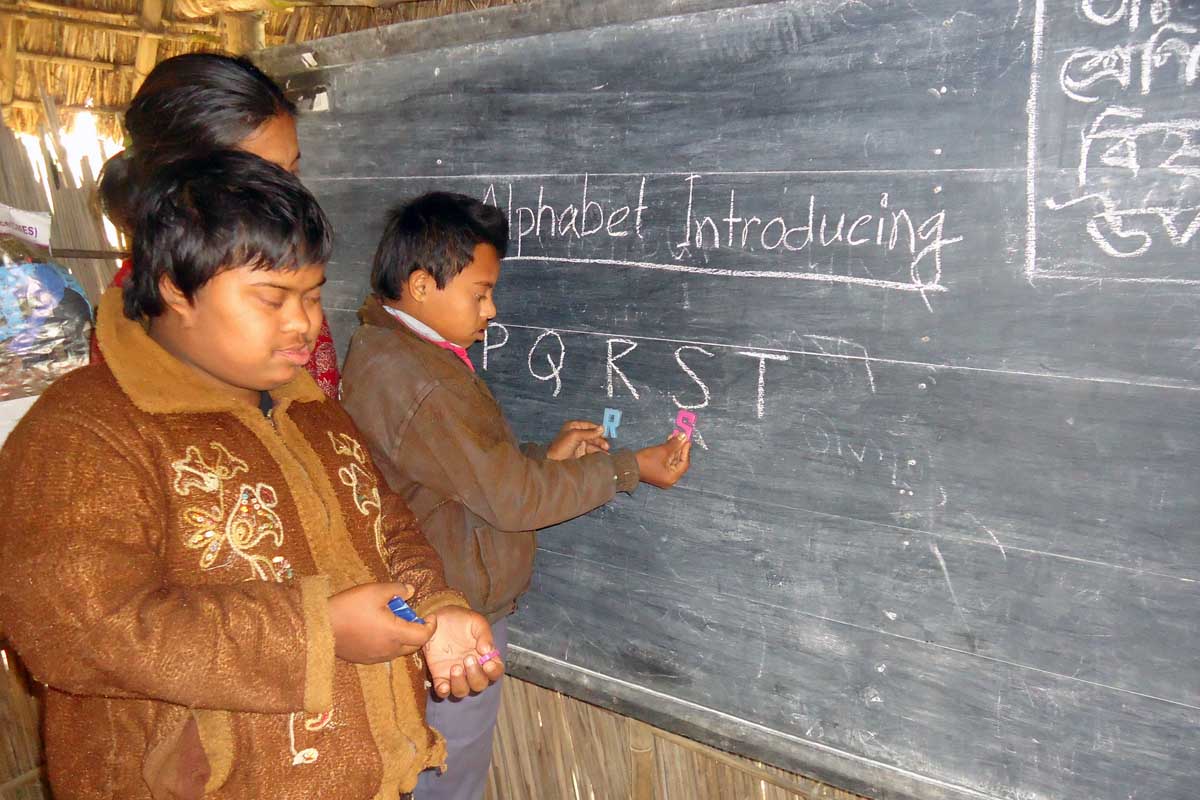 Alphabet Introducing
P Q R S T
R S
শ্রেণি